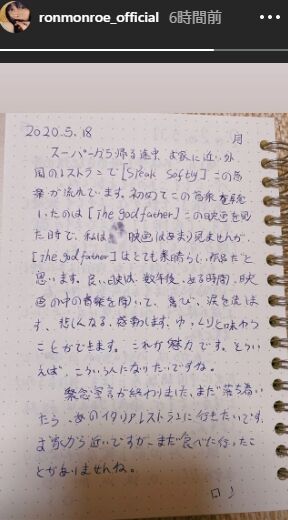 ronmonroe_official 6時間前
2020.5.18 月
スーパーから帰る途中、お家に近い外
国のレストランで[Speak Softly]この音
楽が流れています。初めてこの音楽を聴
いたのは[The godfather]この映画を見
た時で、私は 映画はあまり見ませんが、
[The godfather]はとても素晴らしい作品だと
思います。良い映画は、数年後、ある時間、映
画の中の音楽を聞いて、喜び、涙を流しま
す、悲しくなる、感動します、ゆっくりと味わう
ことができます。これが魅力です。そうい
えば、こういう人になりたいですね。
緊急宣言が終わりました、まだ落ち着い
たら、あのイタリアレストランに行きたいです。
お家から近いですが、まだ食べに行ったこ
とがありませんね。
ロン